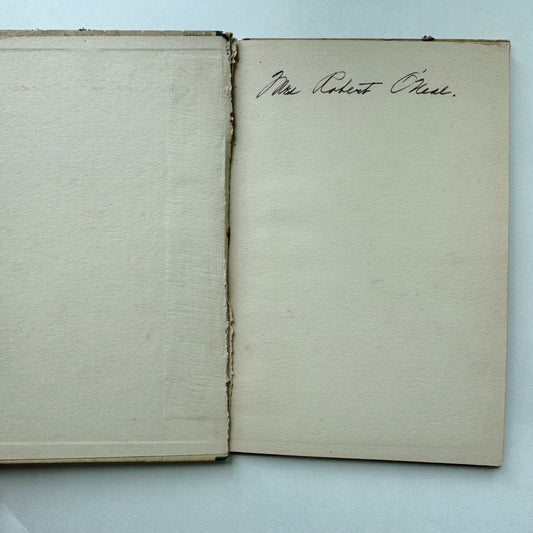 Mrs Robert O'Neal.